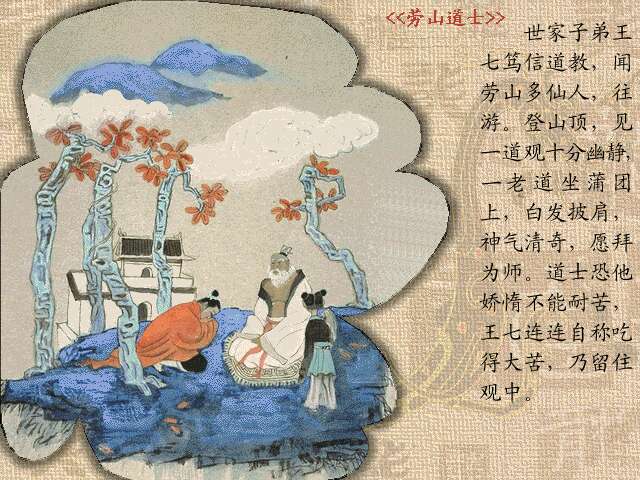 <<劳山道士>>
世家子弟王
七笃信道教，闻
劳山多仙人，往
游。登山顶，见
一道观十分幽静，
一老道坐蒲团
上，白发披肩，
神气清奇，愿拜
为师。道士恐他
娇惰不能耐苦，
王七连连自称吃
得大苦，乃留住
观中。